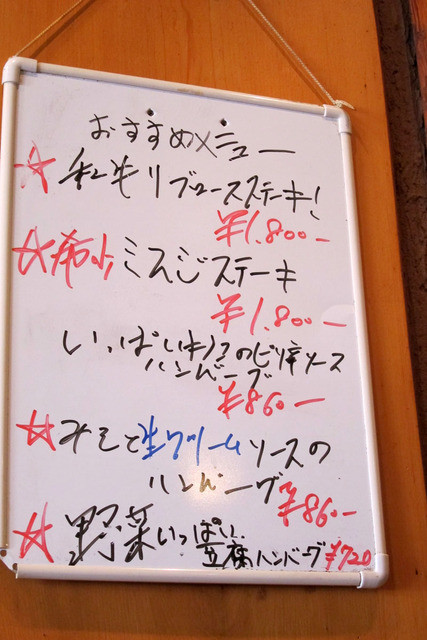 おすすめメニュー
☆和牛リブロースステーキ!
¥1,800-
☆希少ミスジステーキ
¥1,800-
いっぱいキノコのピリ辛ソース
ハンバーグ
¥860-
☆みそと生クリームソースの
ハンバーグ¥860-
☆野菜いっぱい
豆腐ハンバーグ¥720